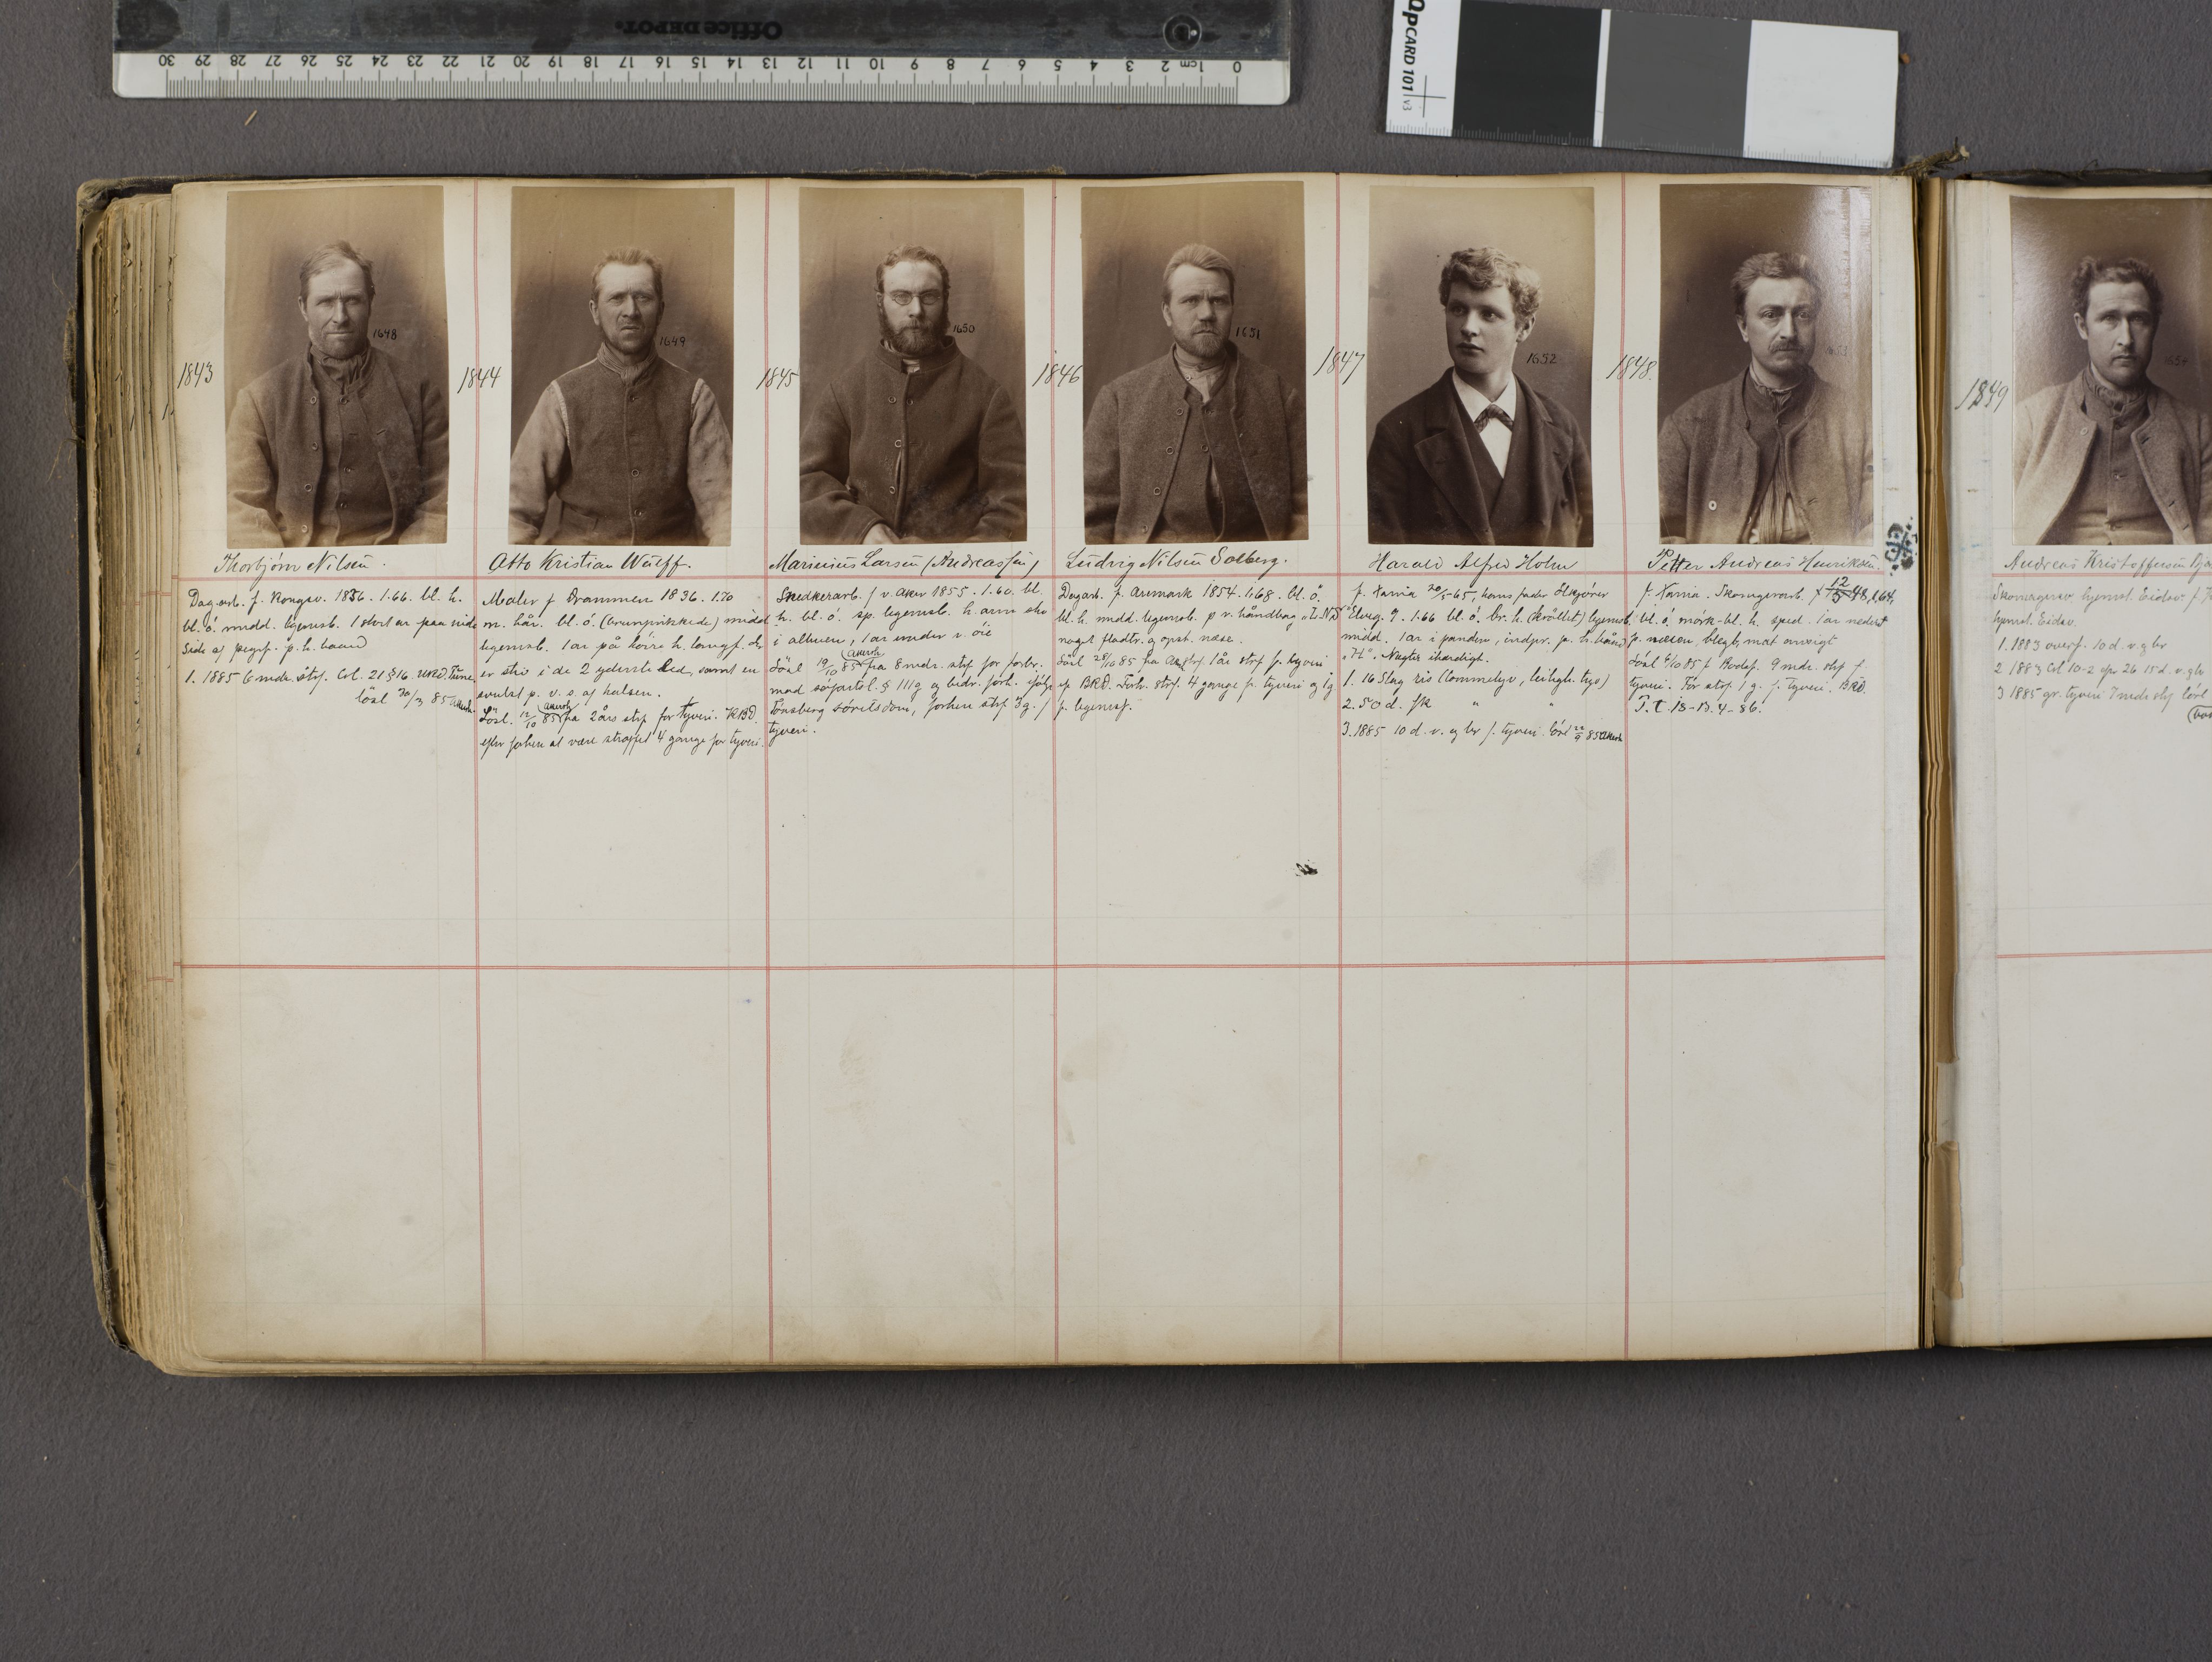 Office DEPOT.
30 29 28 27 26 25 24 23 22 21 20 19 18 17 16 15 14 13 12 11 10 9 8 7 6 5 4 3 2 1cm 0
QPCARD 101 v3
1843
1648
Thorbjörn Nilsen.
Dagarb. f. Kongsv. 1836. 1.66. bl. h.
bl. ö. midd. legemsb. 1 stort ar paa
side af pegef. p. h. haand
1. 1885 6 mdr. stfr. Crl. 21 § 16.
lösl 30/3 85
1844
1649
Otto Kristian Wulff.
Maler f. Drammen 1836. 1.70
m. hår. bl. ö. (brunprikkede) midd
legemsb. 1 ar på höire h. langf. der
er stiv i de 2 yderste led, samt en
svulst p. v. s. af halsen.
Lösl. 12/10 85 fra 2 års stf for tyveri.
efter forhen at være straffet 4 gange for tyveri.
1845
1650
Marinius Larsen (Andreassen)
Snedkerarb. f. v. Aker 1855. 1.60. bl.
h. bl. ö. sp. legemsb. h. arm
i albuen, 1 ar under v. öie
Lösl 19/10 85 fra 8 mdr. stf for forbr.
mod söfartsl. § 111 g og bedr. forh.
Tönsberg söretsdom, forhen stf 3 g. f
tyveri.
1846
1651
Ludvig Nilsen Solberg.
Dagarb. f. Aremark 1854. 1.68. bl. ö.
bl. h. midd. legemsb. p v. håndbag
noget fladtr. g opst. næse.
Lösl 28/10 85 fra 1 års stf f. tyveri
BRD. Forh. stf. 4 gange f. tyveri og 1 g
f. legemsf.
1847
1652
Harald Alfred Holm
f. Xania 20/5-65, hans fader Ölkjörer
Elveg. 9. 1.66 bl. ö. br. h. (krøllet) legemsb.
midd. 1 ar i panden, indpr. p. h. hånd
"H". Nægter ihærdigt.
1. 16 Slag ris (lommetyv, leiligh. tyv)
2. 50 d. fk " "
3. 1885 10 d. v. og br f. tyveri. lösl 22/9 85
1848.
1653
Petter Andreas Henriksen.
f. Xania. Skomagerarb. f 12/5 48, 1.64,
bl. ö. mörk-bl. h. sped. 1 ar nederst
p. næsen, blegt, mat ansigt
Lösl 6/10 85 f. Bodsf. 9 mdr. stf f.
tyveri. För stf 1 g. f. Tyveri. BRD.
T. t. 13-13. 4-86.
1849
1654
Andreas Kristoffersen
hjemst. Eidsv.
1. 1883 overf. 10 d. v. g br
2 1883 Crl 10-2 26 15 d. v. g br
3 1885 gr. tyveri 7 mdr stf lösl